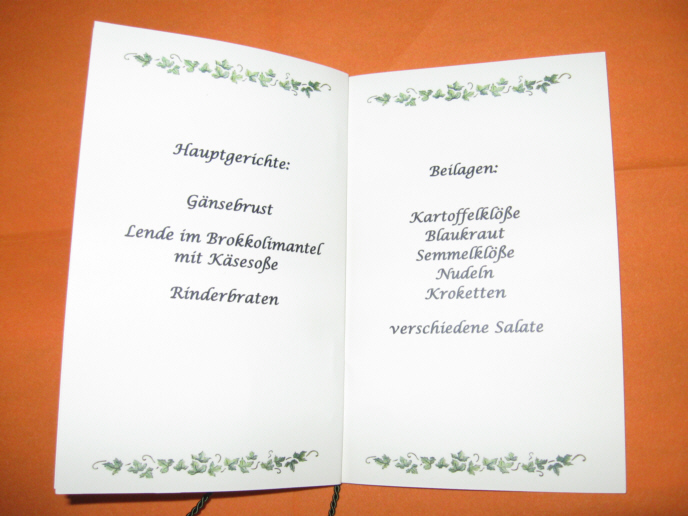 Hauptgerichte:
Gänsebrust
Lende im Brokkolimantel
mit Käsesoße
Rinderbraten
Beilagen:
Kartoffelklöße
Blaukraut
Semmelklöße
Nudeln
Kroketten
verschiedene Salate